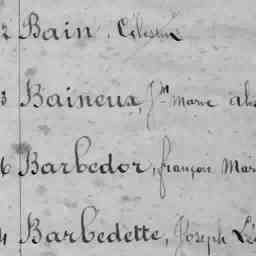 2 Bain, Célestin
3 Baineux, Jn Marie
6 Barbedor, françois Mar
4 Barbedette, Joseph Lé